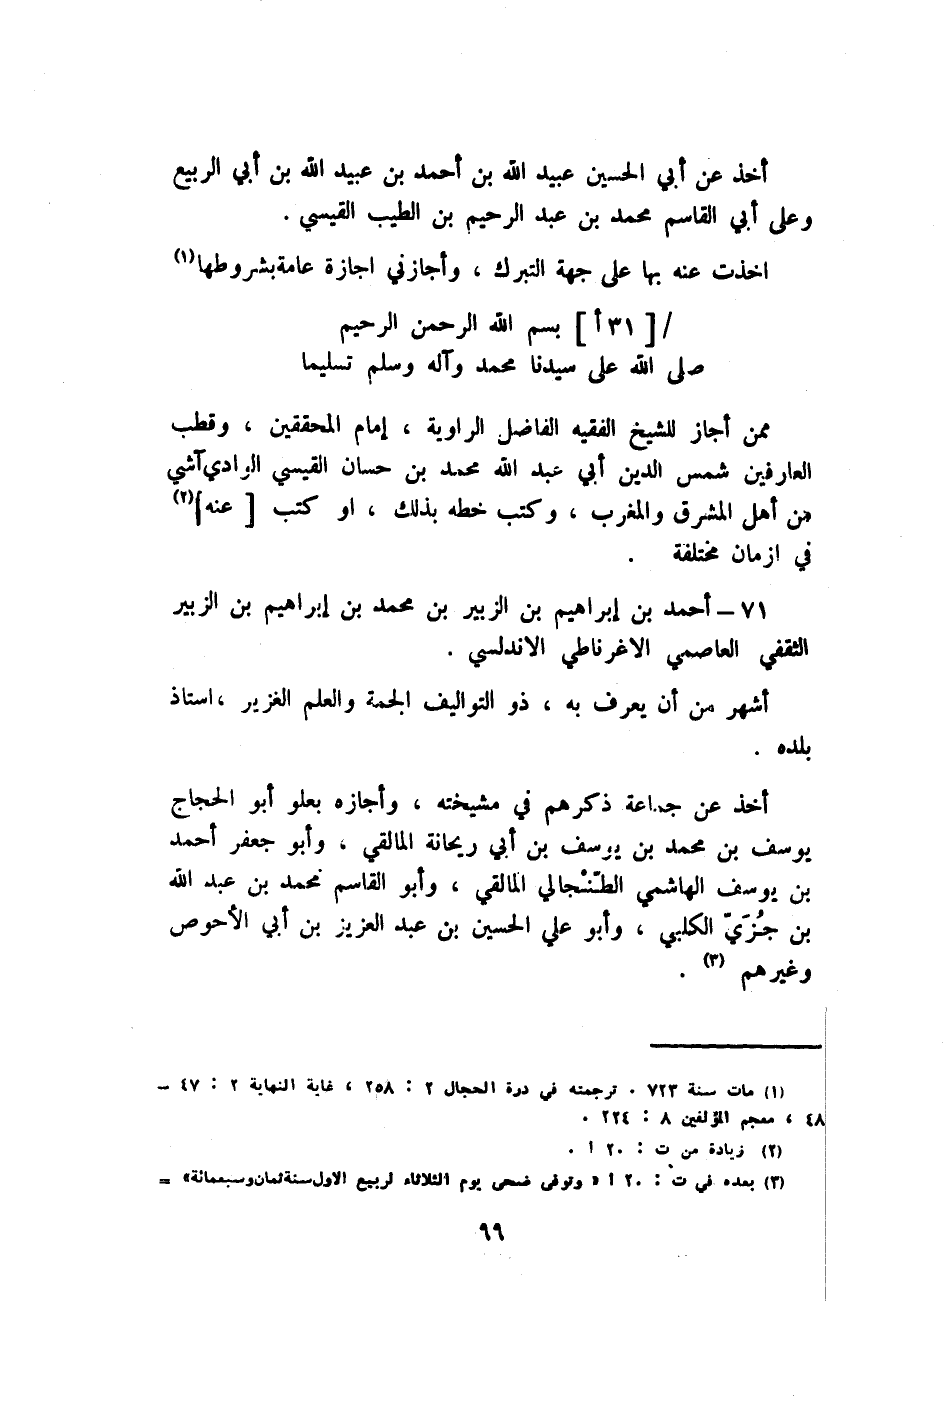 أخذ عن أبي الحسين عبيد الله بن أحمد بن عبيد الله بن أبي الربيع
وعلى أبي القاسم محمد بن عبد الرحيم بن الطيب القيسي .
اخذت عنه بها على جهة التبرك ، وأجازني اجازة عامة بشروطها(١)
/ [ ٣١أ ] بسم الله الرحمن الرحيم
صلى الله على سيدنا محمد وآله وسلم تسليما
ممن أجاز للشيخ الفقيه الفاضل الراوية ، إمام المحققين ، وقطب
العارفين شمس الدين أبي عبد الله محمد بن حسان القيسي الوادي آشي
من أهل المشرق والمغرب ، وكتب خطه بذلك ، او كتب [ عنه ](٢)
في ازمان مختلفة .
٧١ ــ أحمد بن إبراهيم بن الزبير بن محمد بن إبراهيم بن الزبير
الثقفي العاصمي الاغرناطي الاندلسي .
أشهر من أن يعرف به ، ذو التواليف الجمة والعلم الغزير ، استاذ
بلده .
أخذ عن جماعة ذكرهم في مشيخته ، وأجازه بعلو أبو الحجاج
يوسف بن محمد بن يوسف بن أبي ريحانة المالقي ، وأبو جعفر أحمد
بن يوسف الهاشمي الطّنْجالي المالقي ، وأبو القاسم محمد بن عبد الله
بن جُزَيّ الكلبي ، وأبو علي الحسين بن عبد العزيز بن أبي الأحوص
وغيرهم (٣) .
(١) مات سنة ٧٢٣ . ترجمته في درة الحجال ٢ : ٢٥٨ ، غاية النهاية ٢ : ٤٧ ــ
٤٨ ، معجم المؤلفين ٨ : ٢٢٤ .
(٢) زيادة من ت : ٢٠ أ .
(٣) بعده في ت : ٢٠ أ « وتوفى ضحى يوم الثلاثاء لربيع الاول سنة ثمان وسبعمائة » =
٩٩